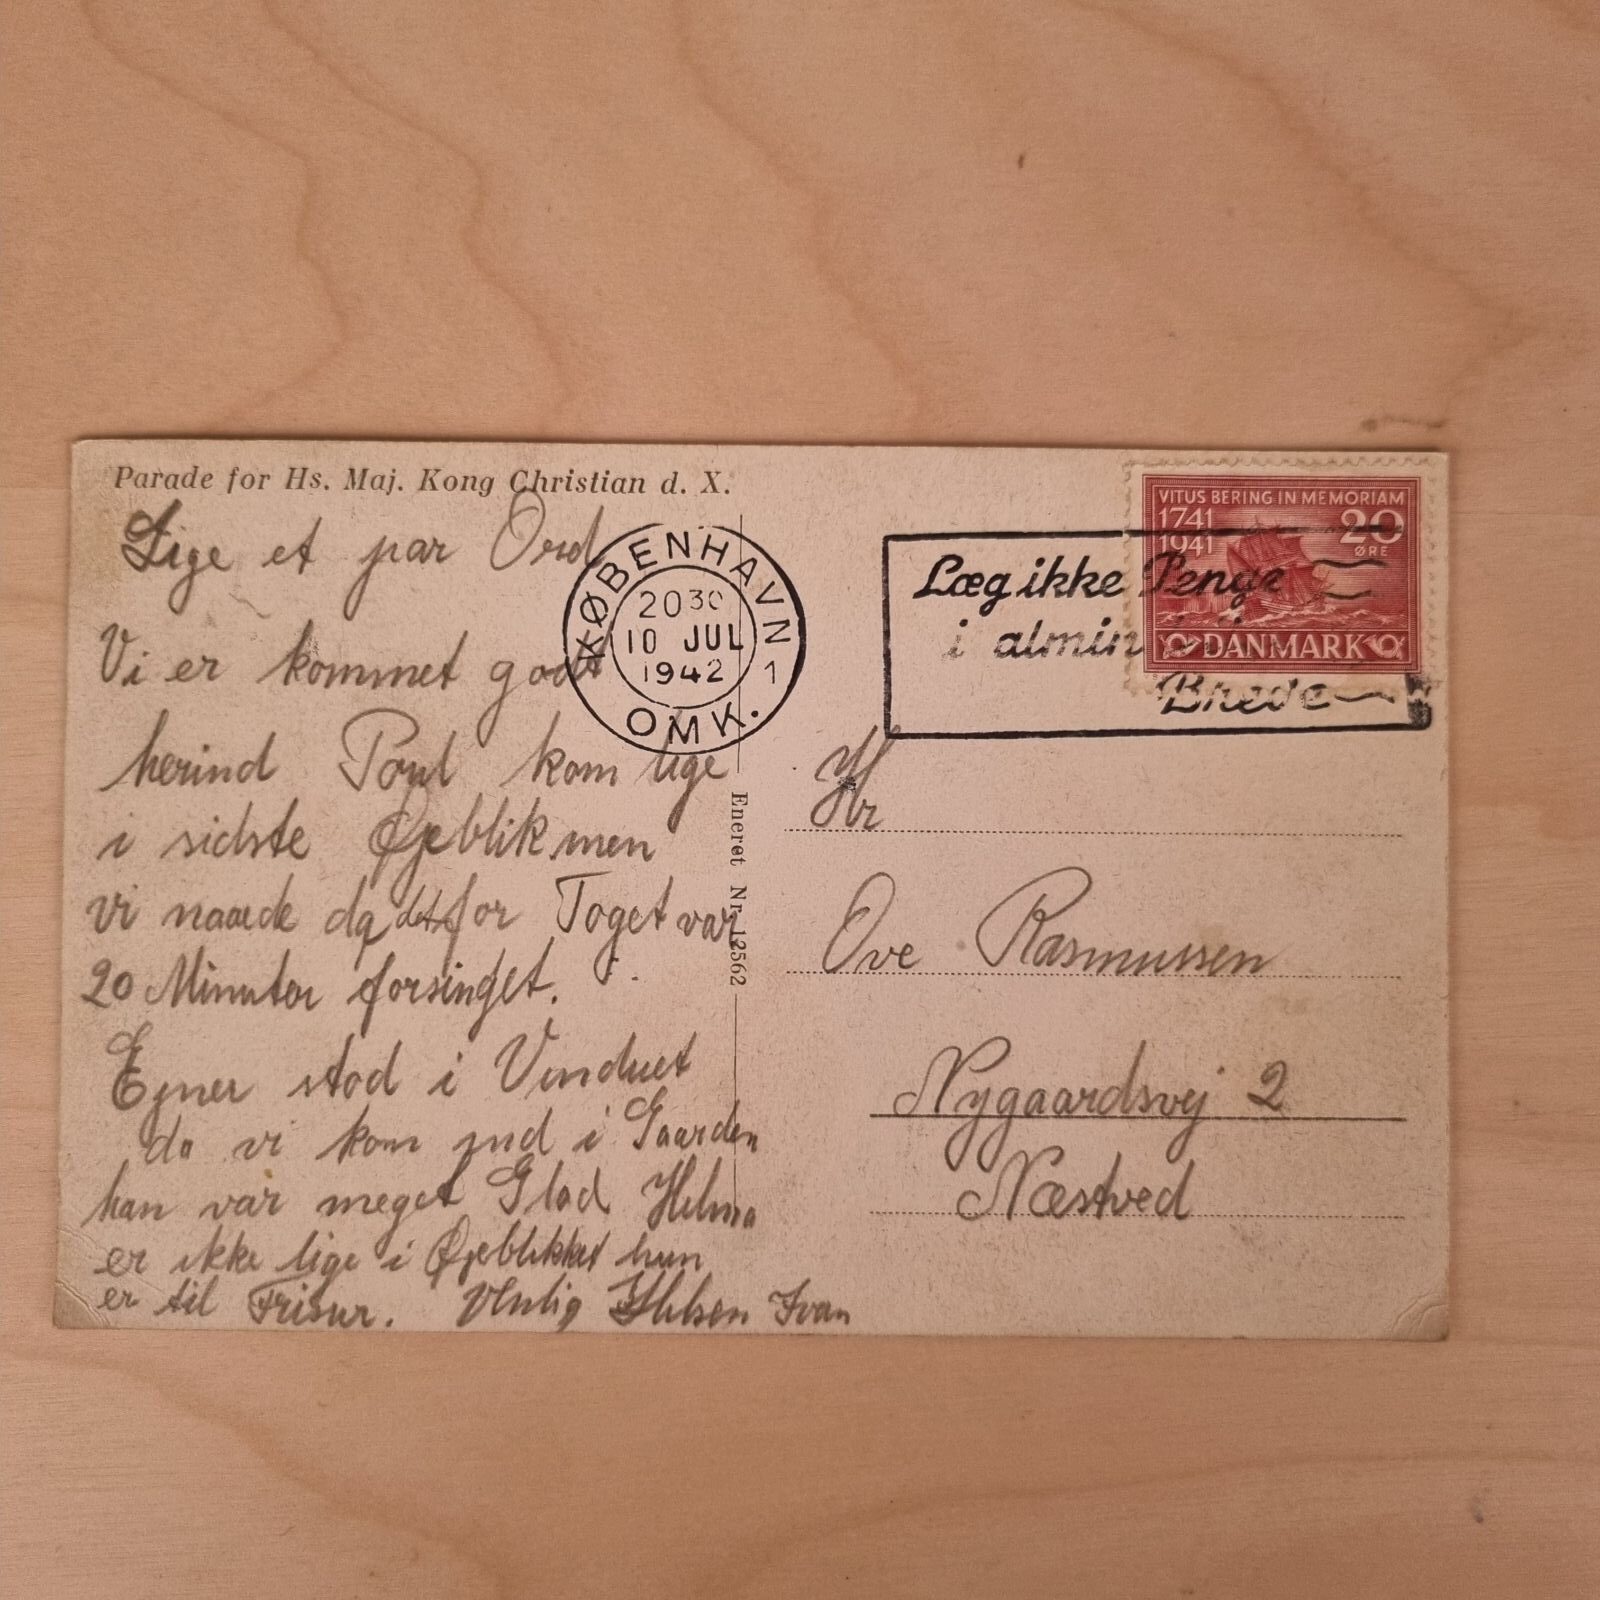 Parade for Hs. Maj. Kong Christian d. X.
Lige et par Ord
Vi er kommet godt
herind Poul kom lige
i sidste Øjeblik men
vi naaede da det for Toget var
20 Minutter forsinket.
Ejner stod i Vinduet
da vi kom ind i Gaarden
han var meget Glad Helma
er ikke lige i Øjeblikket hun
er til Frisur. Venlig Hilsen Ivan
KØBENHAVN 1
20 30
10 JUL
1942
OMK.
Eneret Nr. 12562
VITUS BERING IN MEMORIAM
1741
1941
20
ØRE
DANMARK
Læg ikke Penge
i almin
Breve
Hr
Ove Rasmussen
Nygaardsvej 2
Næstved